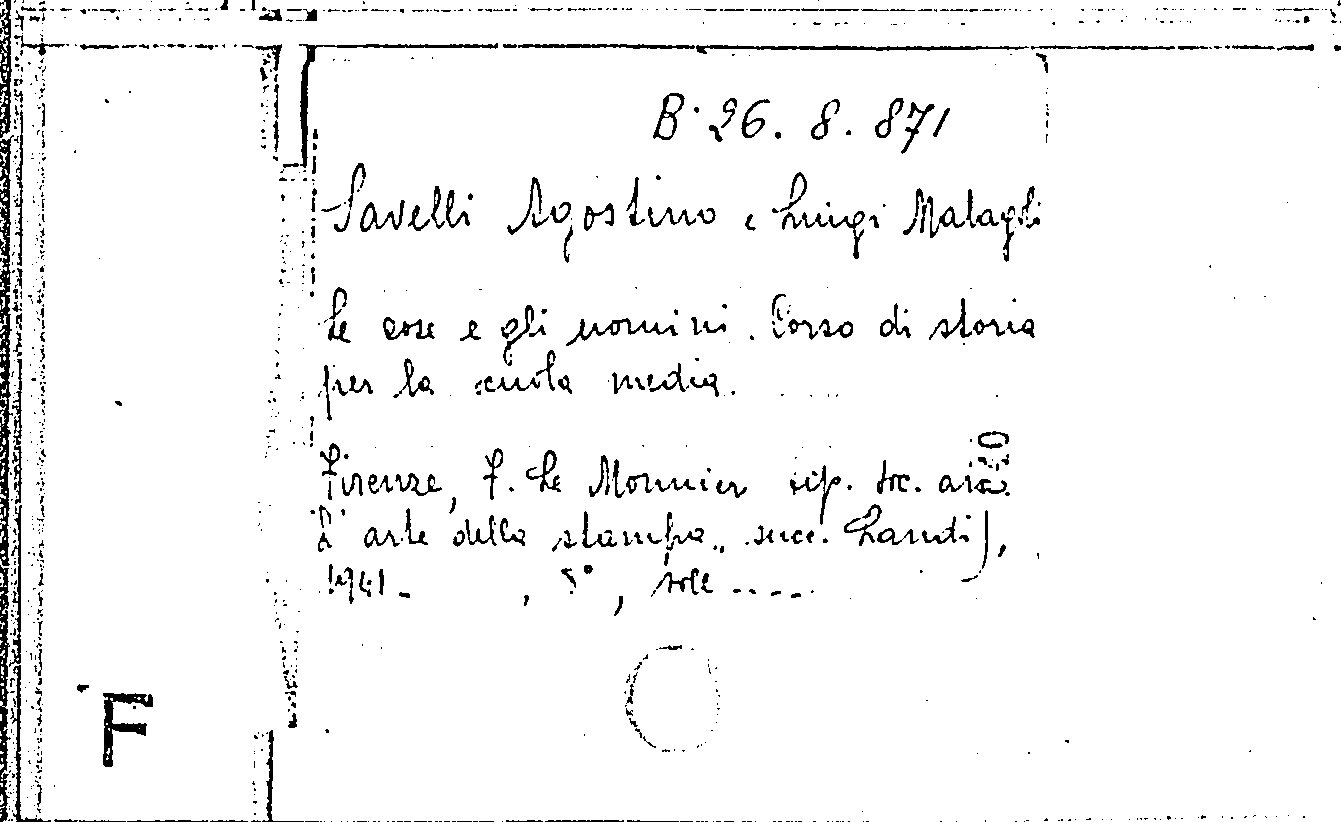 B. 26. 8. 871
Savelli Agostino e Luigi Malagoli
Le cose e gli uomini. Corso di storia
per la scuola media.
Firenze, F. Le Monnier tip. soc. an.
L'arte della stampa,, succ. Landi),
1941- , 8°, voll ....
F